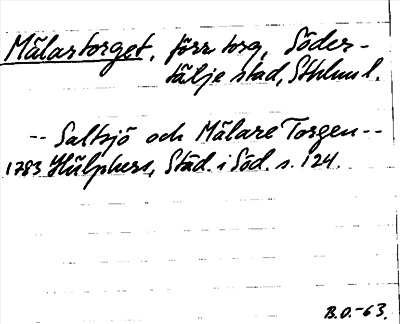 Mälartorget, förr torg, Söder-
tälje stad, Sthlms l.
-- Saltsjö och Mälare Torgen --
1783 Hülphers, Städ. i Söd. s. 124.
B.O.-63.